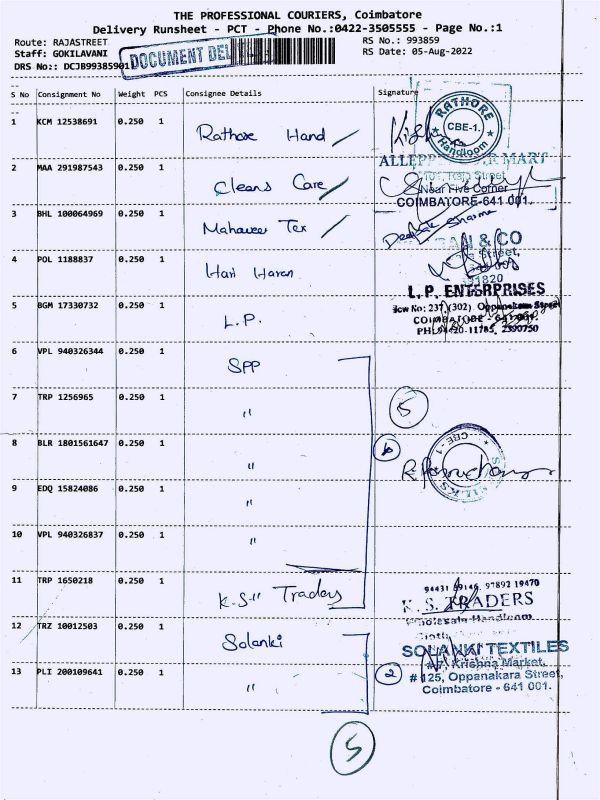 THE PROFESSIONAL COURIERS, Coimbatore
Delivery Runsheet - PCT - Phone No.:0422-3505555 - Page No.:1
Route: RAJASTREET
RS No.: 993859
Staff: GOKILAVANI
RS Date: 05-Aug-2022
DRS No:: DCJB99385901
DOCUMENT DEL
S No Consignment No Weight PCS Consignee Details Signature
1 KCM 12538691 0.250 1 Rathore Hand
RATHORE
CBE-1.
Handloom
2 MAA 291987543 0.250 1 Cleans Care
MART
Raja Street
Near Five Corner
COIMBATORE-641 001.
3 BHL 100064969 0.250 1 Mahaveer Tex
Deepak Sharma
4 POL 1188837 0.250 1 Hari Haran
& CO
Street,
L. P. ENTERPRISES
5 BGM 17330732 0.250 1 L.P.
New No: 237, (302) Oppanakara Street
COIMBATORE - 641 001.
2390750
6 VPL 940326344 0.250 1 SPP
7 TRP 1256965 0.250 1 "
5
8 BLR 1801561647 0.250 1 "
6
CBE - 1
9 EDQ 15824086 0.250 1 "
10 VPL 940326837 0.250 1 "
11 TRP 1650218 0.250 1 K.S" Traders
94431 97892 19470
K. S. TRADERS
Wholesale Handloom
Cloth
12 TRZ 10012503 0.250 1 Solanki
SOLANKI TEXTILES
#7, Krishna Market,
13 PLI 200109641 0.250 1 "
2
# 125, Oppanakara Street,
Coimbatore - 641 001.
5